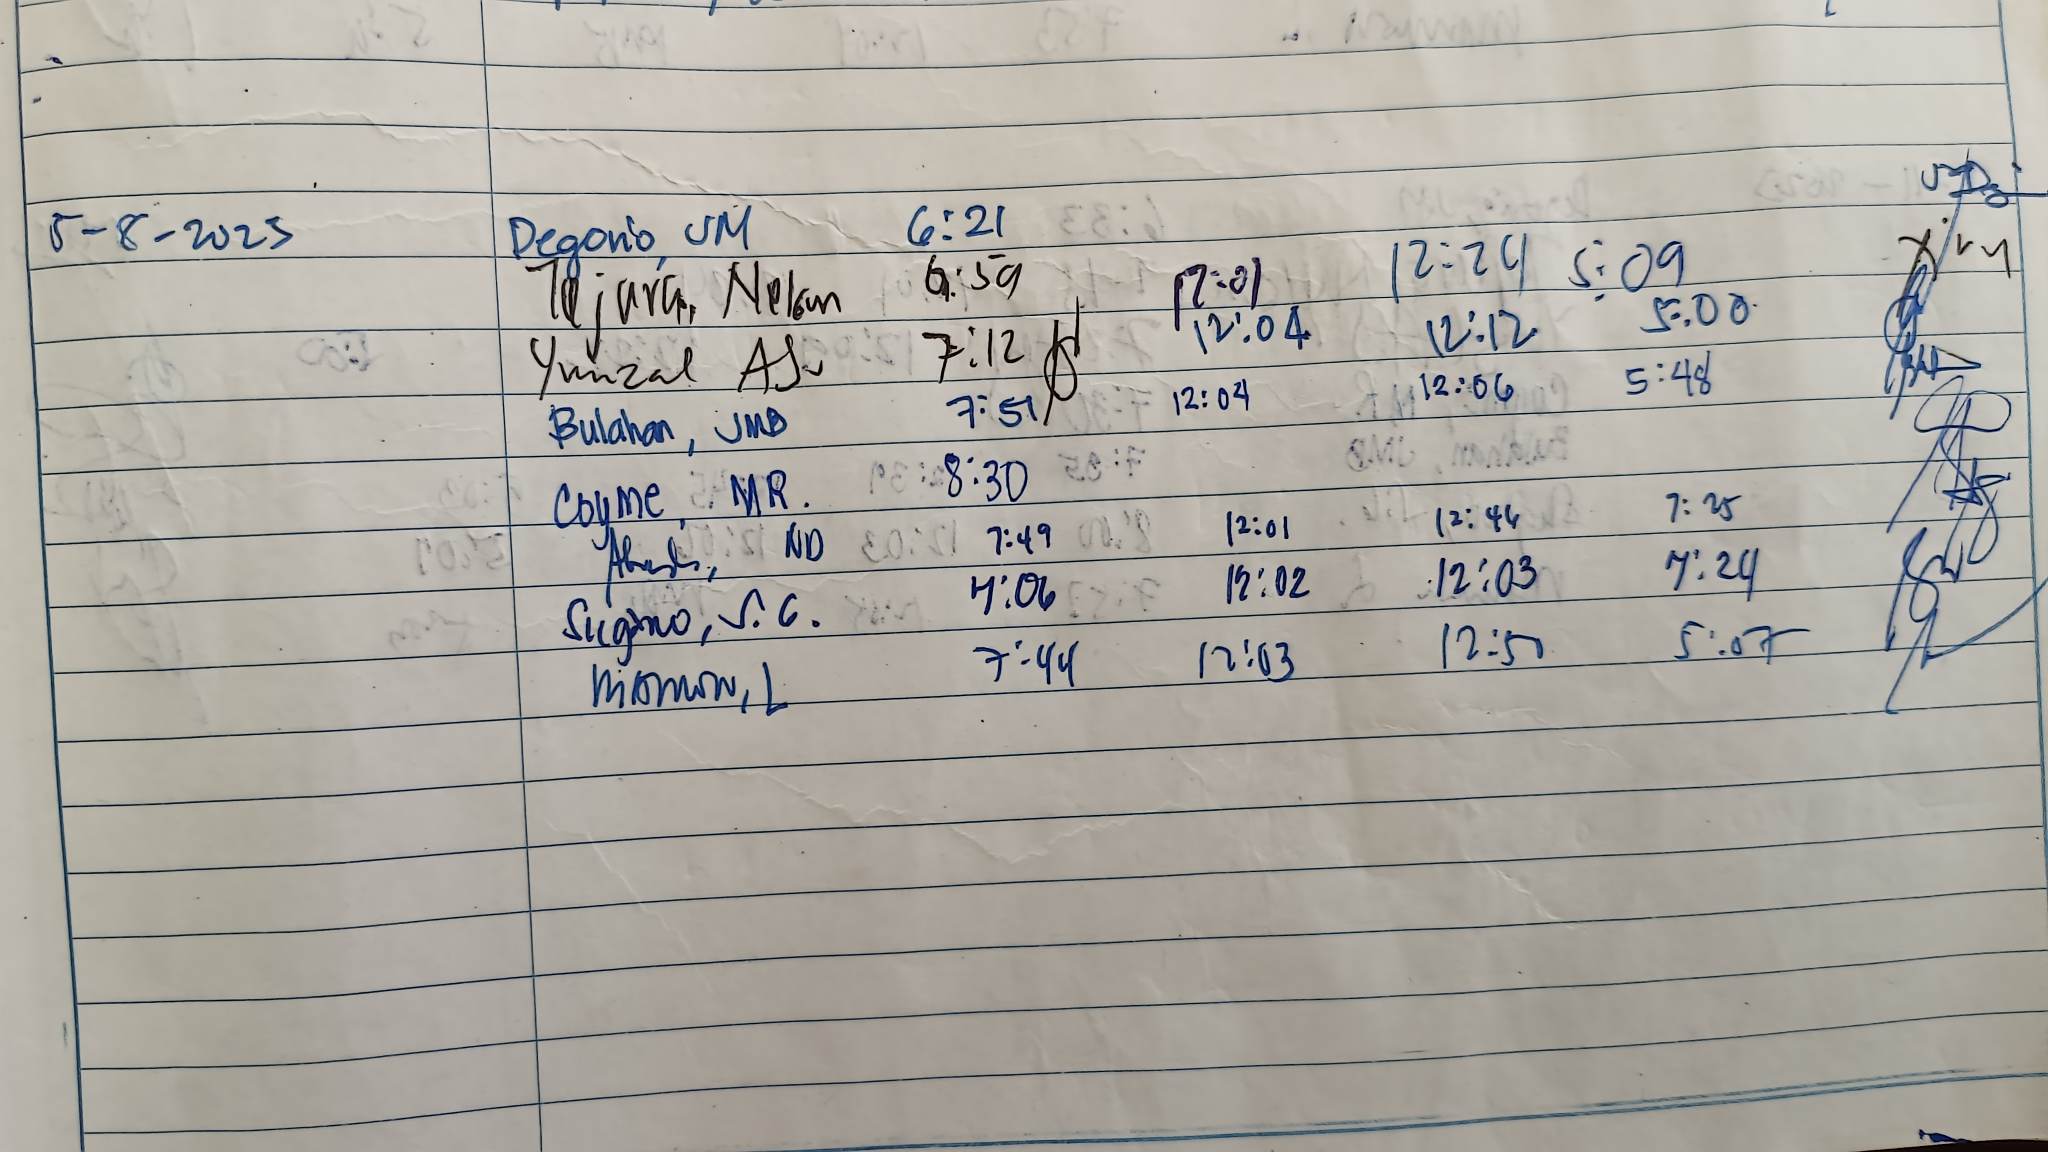 5-8-2023 Degorio, JM 6:21
Tejara, Nelson 6:59 12:01 12:24 5:09
Yunzal AJ 7:12 12:04 12:12 5:00
Bulahan, JMB 7:51 12:04 12:06 5:48
Coyme, MR. 8:30
ND 7:49 12:01 12:46 7:25
S.G. 7:06 12:02 12:03 7:24
L 7:44 12:03 12:50 5:07